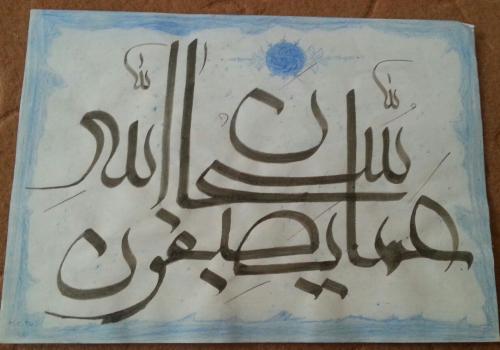 سبحان الله
عما يصفون